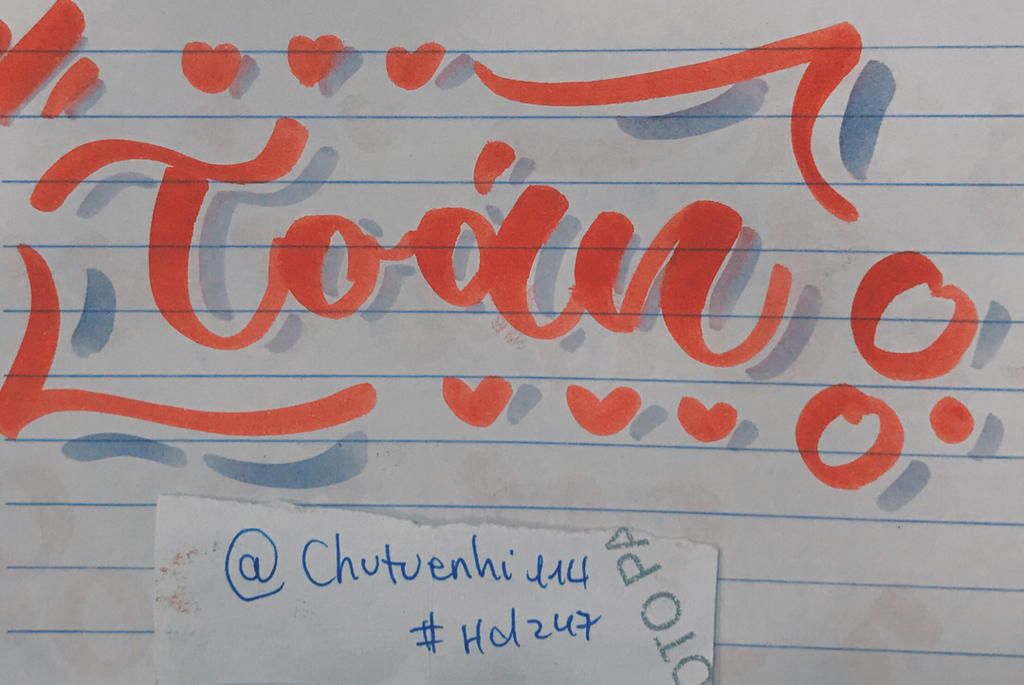 Toán
@Chutuenhi114
#Hd247
OTO PA